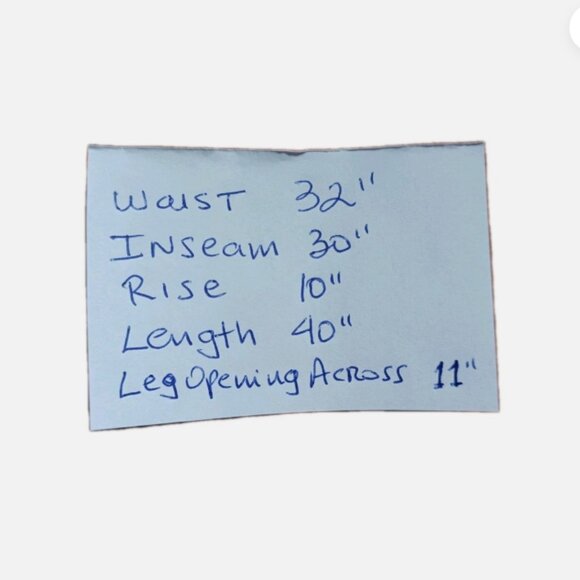 Waist 32"
Inseam 30"
Rise 10"
Length 40"
Leg Opening Across 11"